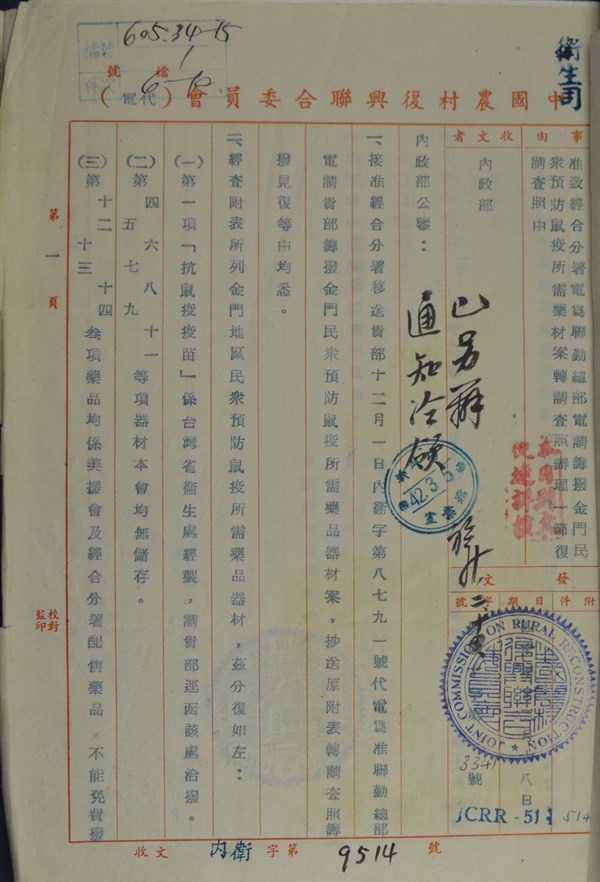 605.34-15
1
6-10
檔
號
衛生司
中國農村復興聯合委員會（代電）
事由
准致經合分署電為聯勤總部電請籌撥金門民
衆預防鼠疫所需藥材案轉請查照辦理一節復
請查照由
收文者
內政部
發文
附件
日期
字號
八日
3341
號
JCRR-51
514
JOINT COMMISSION ON RURAL RECONSTRUCTION
內政部公鑒：
通知洽領
42.3.3
一、接准經合分署移送貴部十二月一日內衛字第八七九一號代電為准聯勤總部
電請貴部籌撥金門民衆預防鼠疫所需藥品器材案，抄送原附表轉請查照籌
撥見復等由均悉。
二、經查附表所列金門地區民衆預防鼠疫所需藥品器材，茲分復如左：
（一）第一項「抗鼠疫疫苗」係台灣省衛生處經製，請貴部逕函該處洽撥。
（二）第四五六七八九十一等項器材本會均無儲存。
（三）第十二十三十四叁項藥品均係美援會及經合分署配售藥品，不能免費撥
第一頁
校對
監印
收文
內衛
字第
9514
號